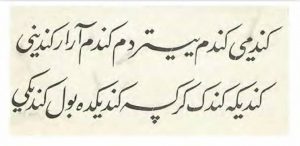 کندمی کندم ییتردم کندم آرار کندینی
کندیکه کندک کرکسه کندیکده بول کندیکی